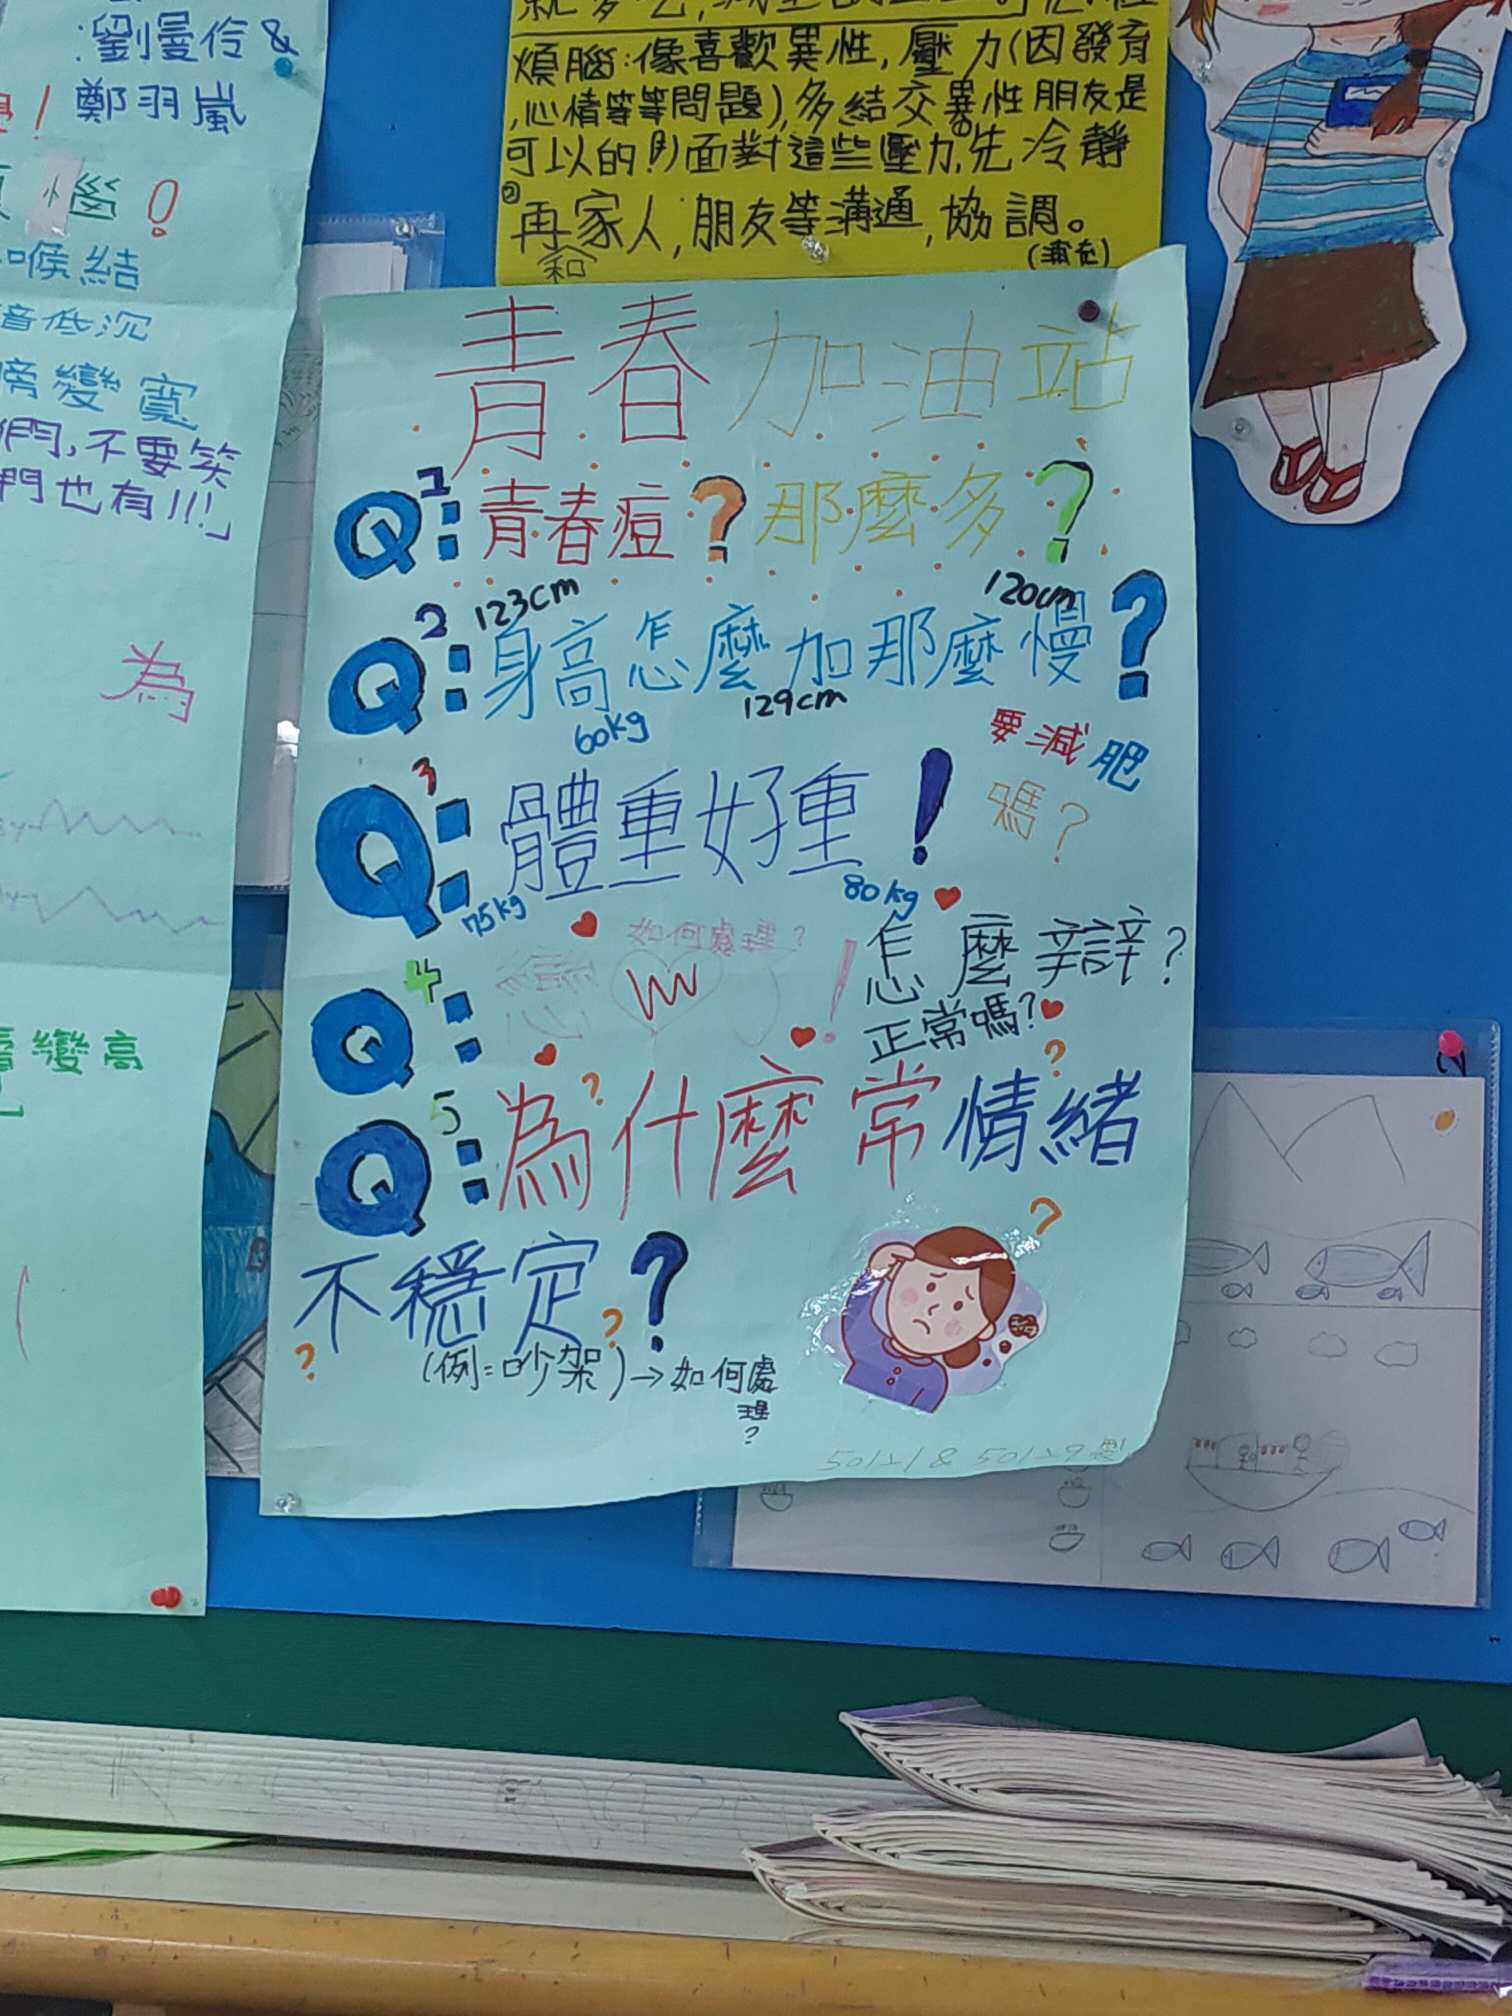 :劉曼伶&
鄭羽嵐
惱!
喉結
音低沉
變寬
們,不要笑
們也有!!!」
為
變高
煩腦:像喜歡異性,壓力(因發育
,心情等等問題),多結交異性朋友是
可以的!
面對這些壓力,①先冷靜
②再和家人,朋友等溝通,協調。
(補充)
青春加油站
Q1:青春痘?那麼多?
123cm
120cm
Q2:身高怎麼加那麼慢?
60kg
129cm
要減肥
嗎?
Q3:體重好重!
75kg
80kg
如何處理?
Q4:戀
!怎麼辯?
正常嗎?
Q5:為什麼常情緒
不穩定?
(例=吵架)→如何處
理?